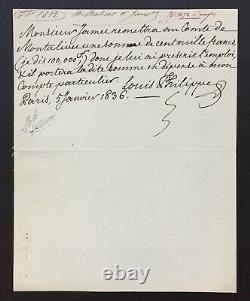 Monsieur Jamet remettra au Comte de
Montalivet une somme de cent mille francs
(je dis 100,000 f) dont je lui ai prescrit l'emploi,
et il portera la dite somme en dépense à mon
Compte particulier Louis Philippe
Paris, 5 Janvier 1836.